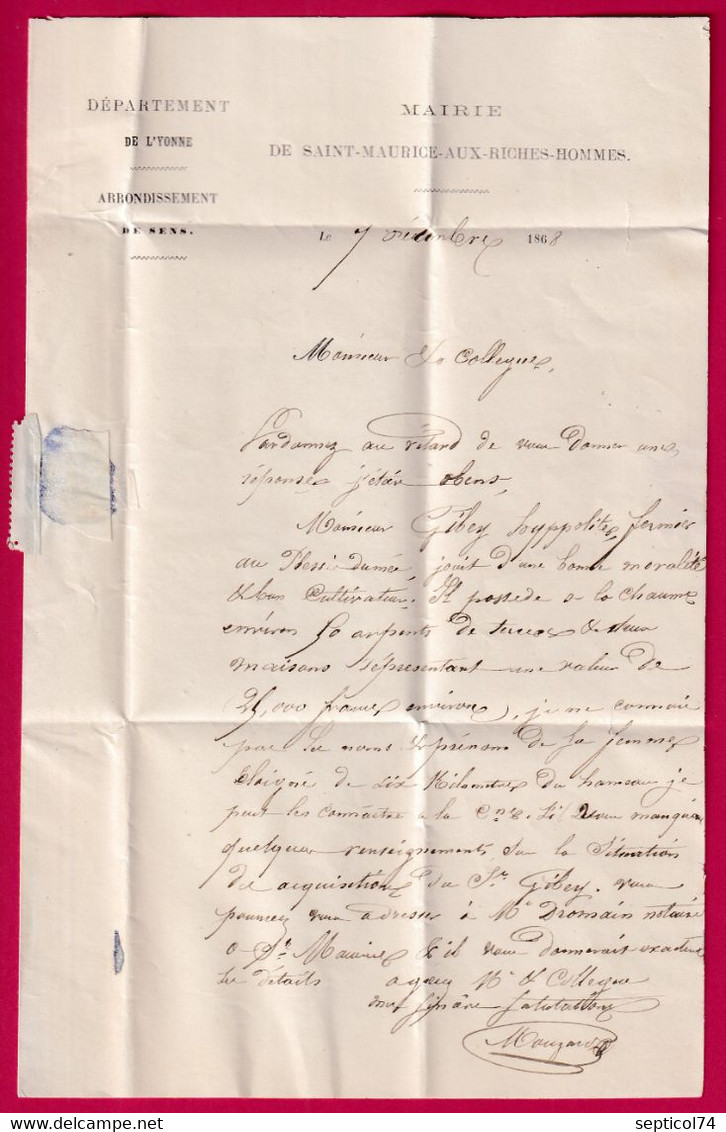 DÉPARTEMENT
DE L'YONNE
ARRONDISSEMENT
DE SENS.
MAIRIE
DE SAINT-MAURICE-AUX-RICHES-HOMMES.
Le 7 Décembre 1868
Monsieur & Collegue,
Pardonnez au rétard de vous donner une
réponse, j'étais absens,
Monsieur Gibey hyppolite, fermier
au Plessi dumée, jouit d'une bonne moralité
& bon Cultivateur. Il possede a la Chaume
environ 50 arpents de terres & deux
maisons répresentant une valeur de
25,000 francs environ, je ne connais
pas les noms & prénoms de sa femme
Eloigné de dix Kilometres du hameau je
peut les connaitre a la Sil vous manquer
quelques renseignements sur la Situation
de acquisition du Sr. Gibey. vous
pourrez vous adresser à Me Dromain notaire
a St Maurice & il vous donnerait exactem
les détails agreez Mr & Collegue
mes sincère salutations
Mouzard
septicol74